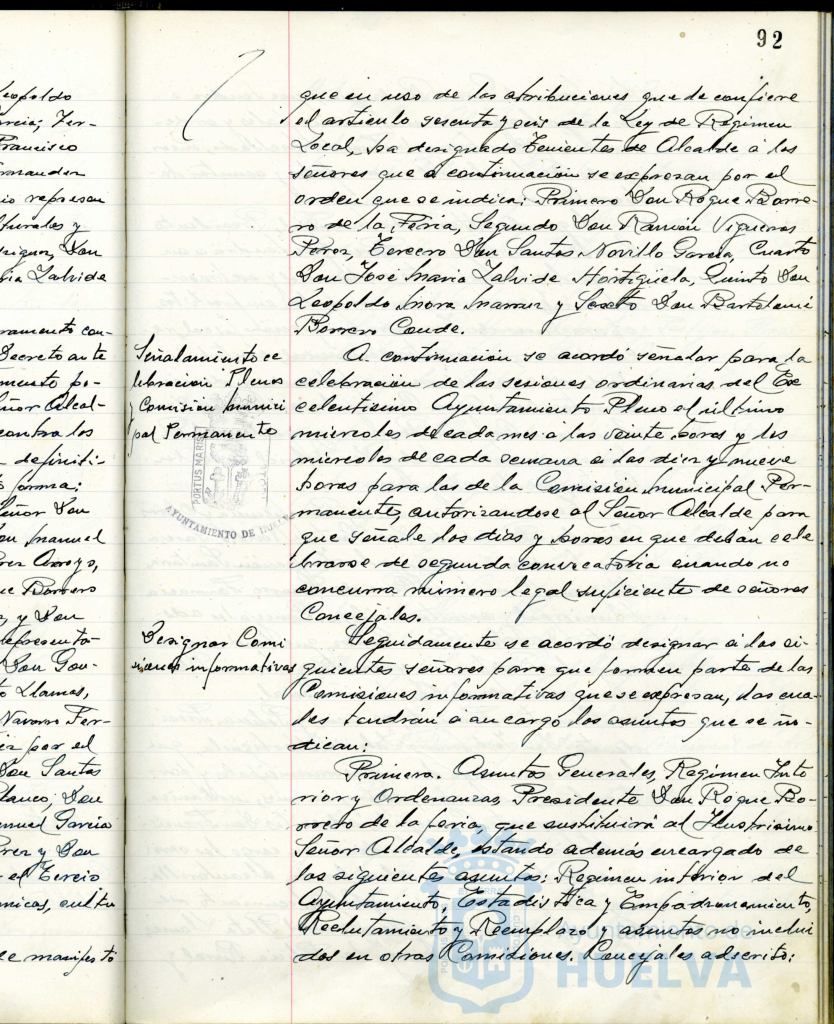 92
eopoldo
arcia; Fer-
Francisco
ernandez
io represen
lturales y
driguez, Don
ria Zalvide
ramento con-
Decreto ante
mento po-
eñor Alcal-
contra los
definiti-
forma:
eñor Don
on Manuel
rez Arroyo,
ue Borrero
z, y Don
representa-
Don Gon-
to Llamas,
Navarro Fer-
cia por el
Don Santos
lanco; Don
anuel Garcia
rez y Don
el Tercio
omicas, cultu
se manifestó
que en uso de las atribuciones que le confiere
el articulo sesenta y seis de la Ley de Régimen
Local, ha designado Tenientes de Alcalde á los
señores que a continuación se expresan por el
orden que se indica: Primero Don Roque Borre-
ro de la Feria, Segundo Don Ramón Vigueras
Perez, Tercero Don Santos Novillo Garcia, Cuarto
Don José Maria Zalvide Hortigüela, Quinto Don
Leopoldo Mora Marruz y Sexto Don Bartolomé
Borrero Conde.
Señalamiento ce
lebracion Plenos
y Comision Munici
pal Permanente
A continuación se acordó señalar para la
celebración de las sesiones ordinarias del Ex
celentisimo Ayuntamiento Pleno el último
miercoles de cada mes á las veinte horas y los
miercoles de cada semana á las diez y nueve
horas para las de la Comisión Municipal Per-
manente, autorizandose al Señor Alcalde para
que señale los dias y horas en que deban cele
brarse de segunda convocatoria cuando no
concurra número legal suficiente de señores
Concejales.
PORTUS MARIS
AYUNTAMIENTO DE HUELVA
Designar Comi
siones informativas
Seguidamente se acordó designar á los si-
guientes señores para que formen parte de las
Comisiones informativas que se expresan, las cua-
les tendrán á su cargo los asuntos que se in-
dican:
Primera. Asuntos Generales, Regimen Inte
rior y Ordenanzas, Presidente Don Roque Bo-
rrero de la feria, que sustituirá al Ilustrisimo
Señor Alcalde, estando además encargado de
los siguientes asuntos: Regimen interior del
Ayuntamiento, Estadistica y Empadronamiento,
Reclutamiento y Reemplazo y asuntos no inclui
dos en otras Comisiones. Concejales adscrito:
Ayuntamiento de
HUELVA